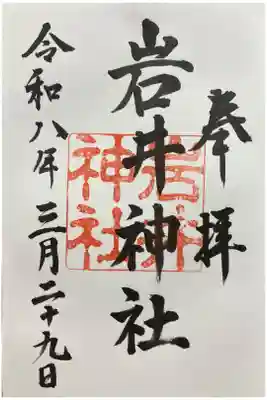 奉拝
岩井神社
岩井神社
令和八年三月二十九日